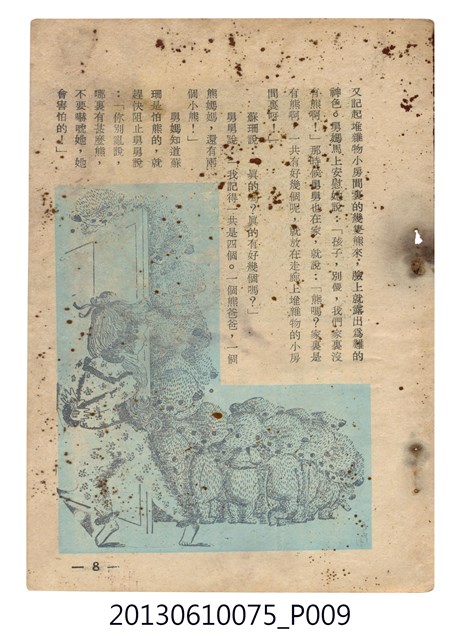 又記起堆雜物小房間裏的幾隻熊來，臉上就露出爲難的
神色。舅媽馬上安慰她說：「孩子，別傻，我們家裏沒
有熊啊！」那時候舅舅也在家，就說：「熊嗎？家裏是
有熊啊，一共有好幾個呢，就放在走廊上堆雜物的小房
間裏呀！」
蘇珊說：「眞的嗎？眞的有好幾個嗎？」
舅舅說：「我記得一共是四個。一個熊爸爸，一個
熊媽媽，還有兩
個小熊！」
舅媽知道蘇
珊是怕熊的，就
趕快阻止舅舅說
：「你別亂說，
哪裏有甚麼熊，
不要嚇唬她，她
會害怕的！」
— 8 —
20130610075_P009